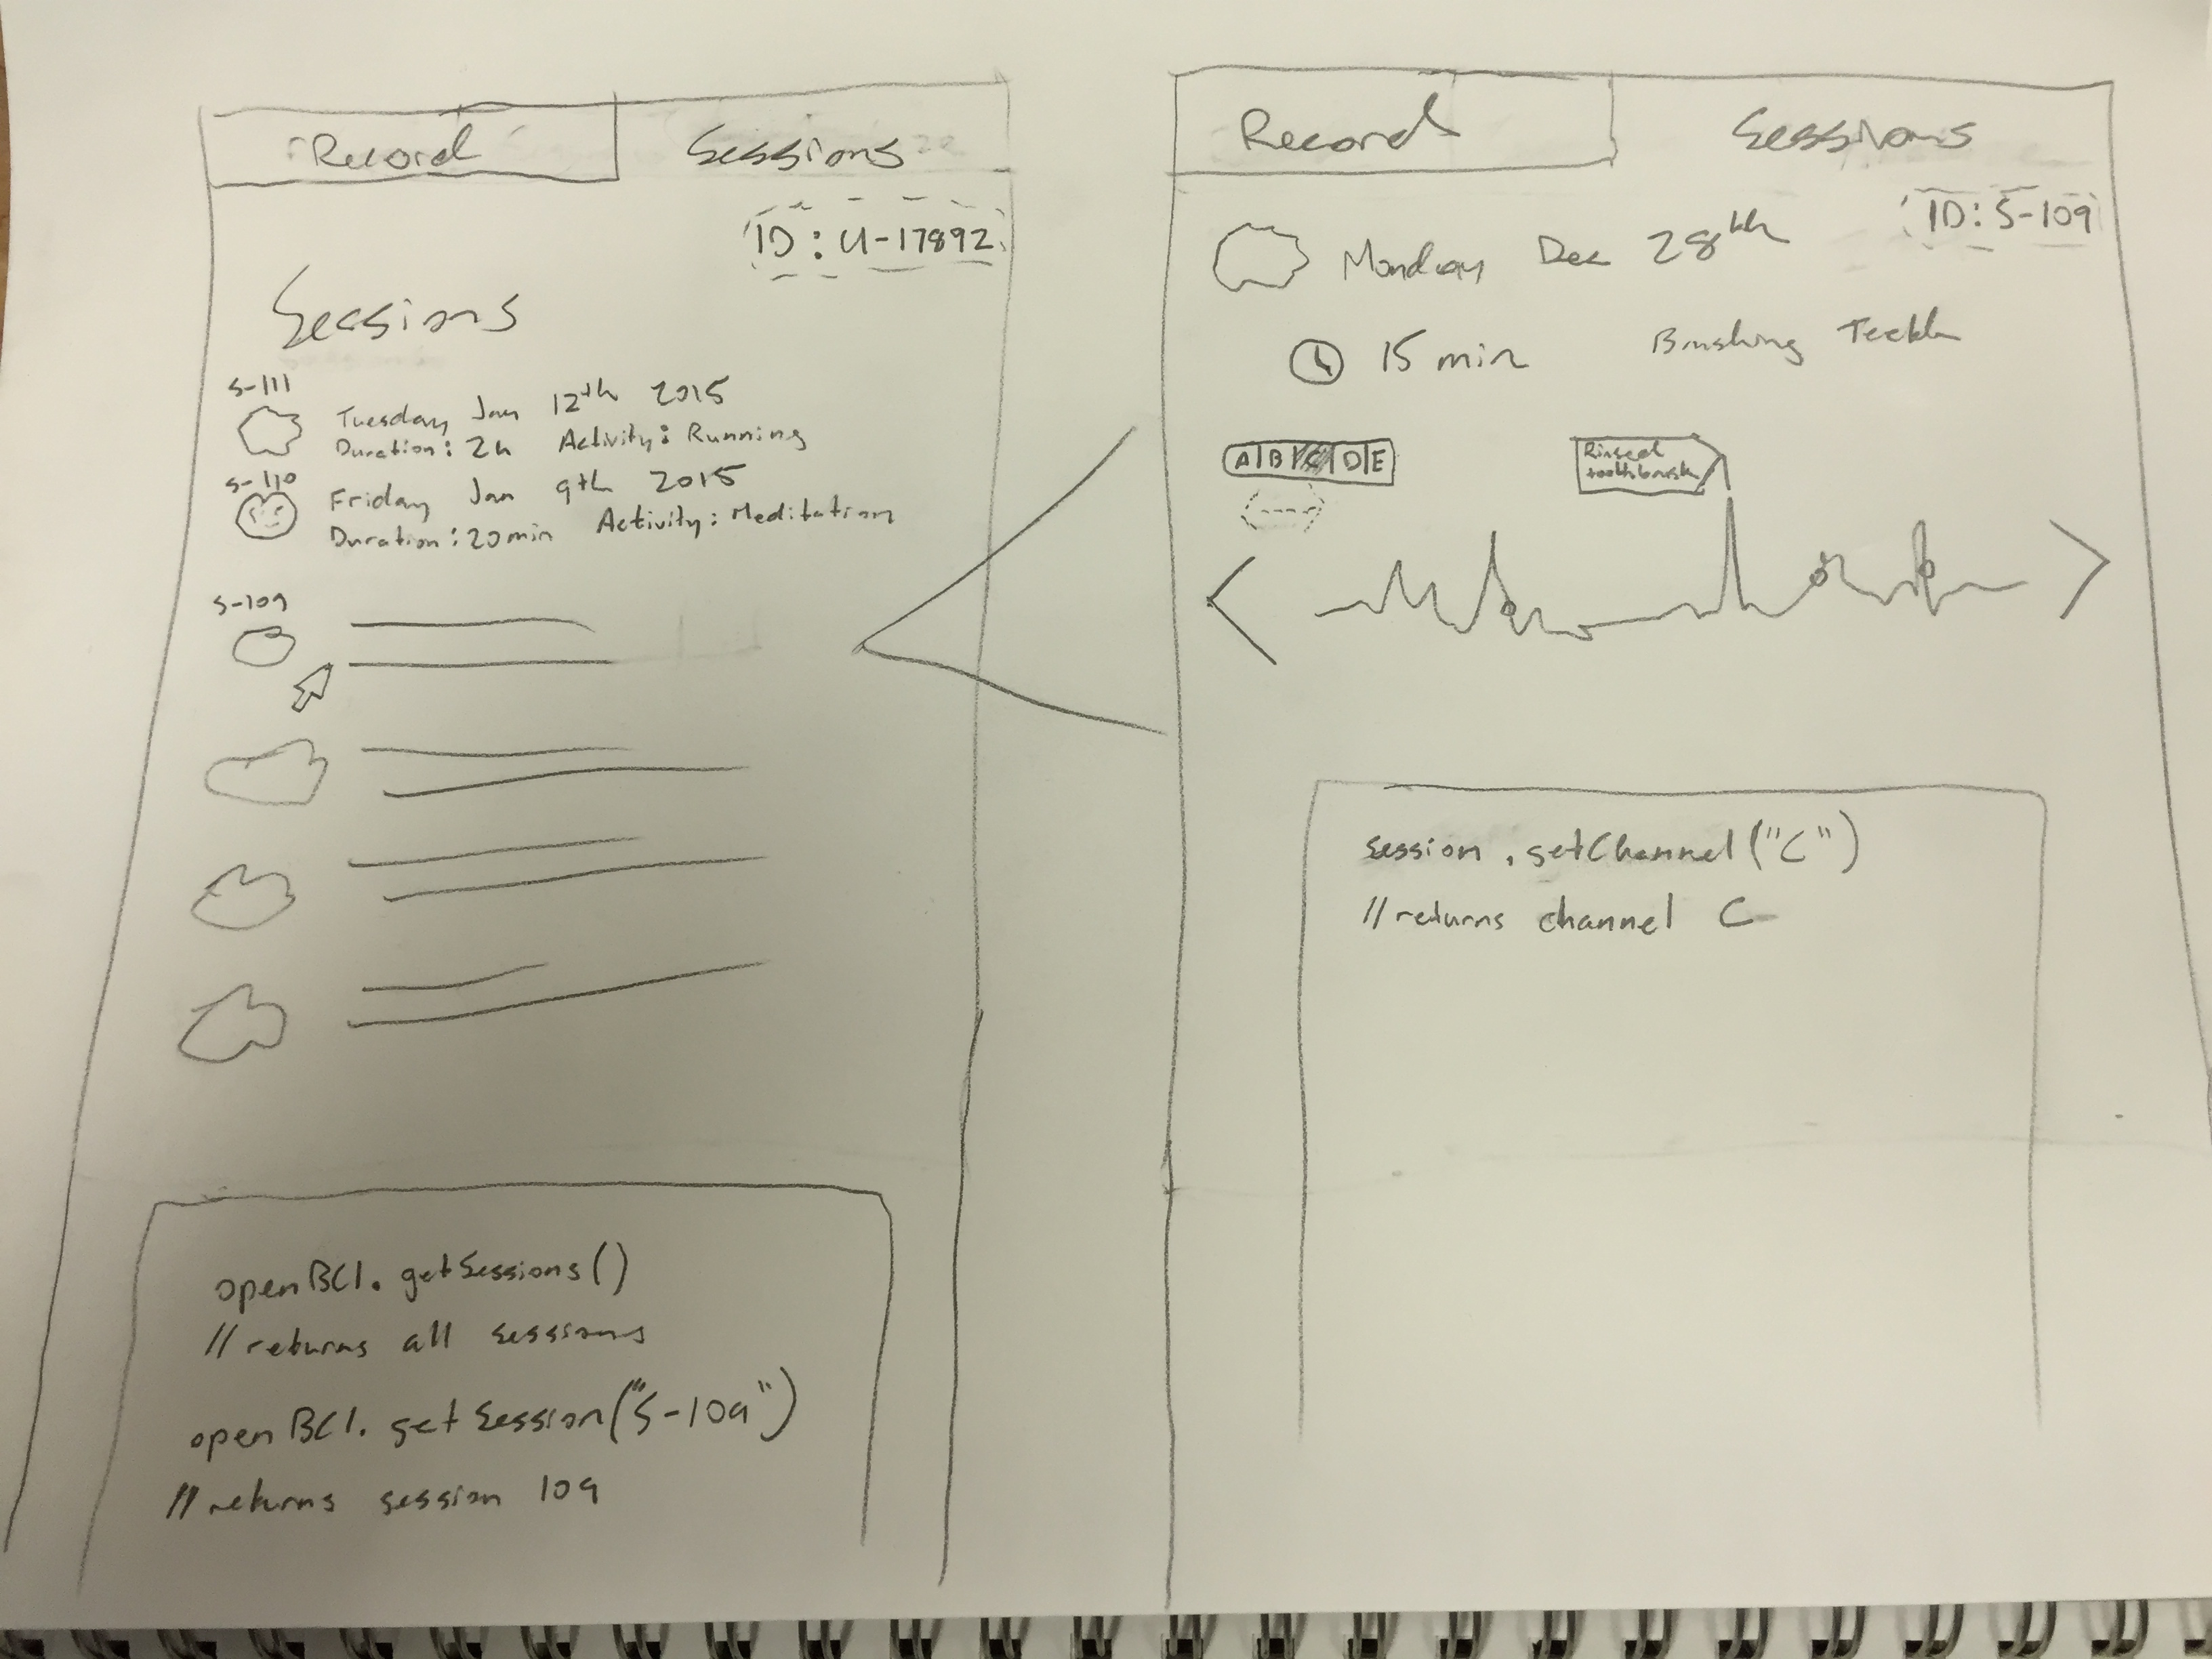 Record Sessions
ID: U-17892
Sessions
S-111
Tuesday Jan 12th 2015
Duration: 2h Activity: Running
S-110
Friday Jan 9th 2015
Duration: 20min Activity: Meditation
S-109
openBCI.getSessions()
//returns all sessions
openBCI.getSession("S-109")
//returns session 109
Record Sessions
ID: S-109
Monday Dec 28th
15 min Brushing Teeth
A|B|C|D|E
Rinsed
toothbrush
session.getChannel("C")
//returns channel C